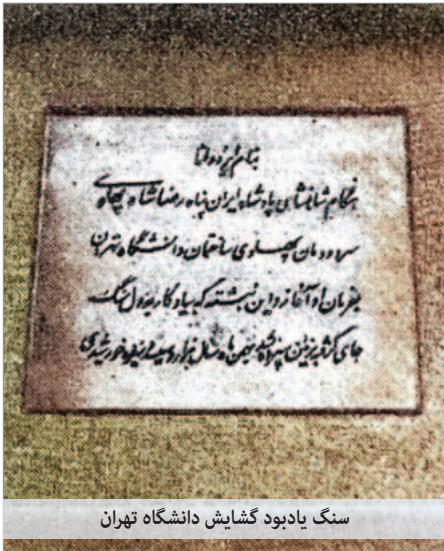 بنام یزدان
هنگام شاهنشاهی پادشاه ایران پناه رضا شاه پهلوی
سر دودمان پهلوی ساختمان دانشگاه تهران
بفرمان او آغاز و این نبشته که بیادگار در دل سنگ
جای گرفته بزمین سپرده شد بهمن ماه سال هزار و سیصد و سیزده خورشیدی
سنگ یادبود گشایش دانشگاه تهران